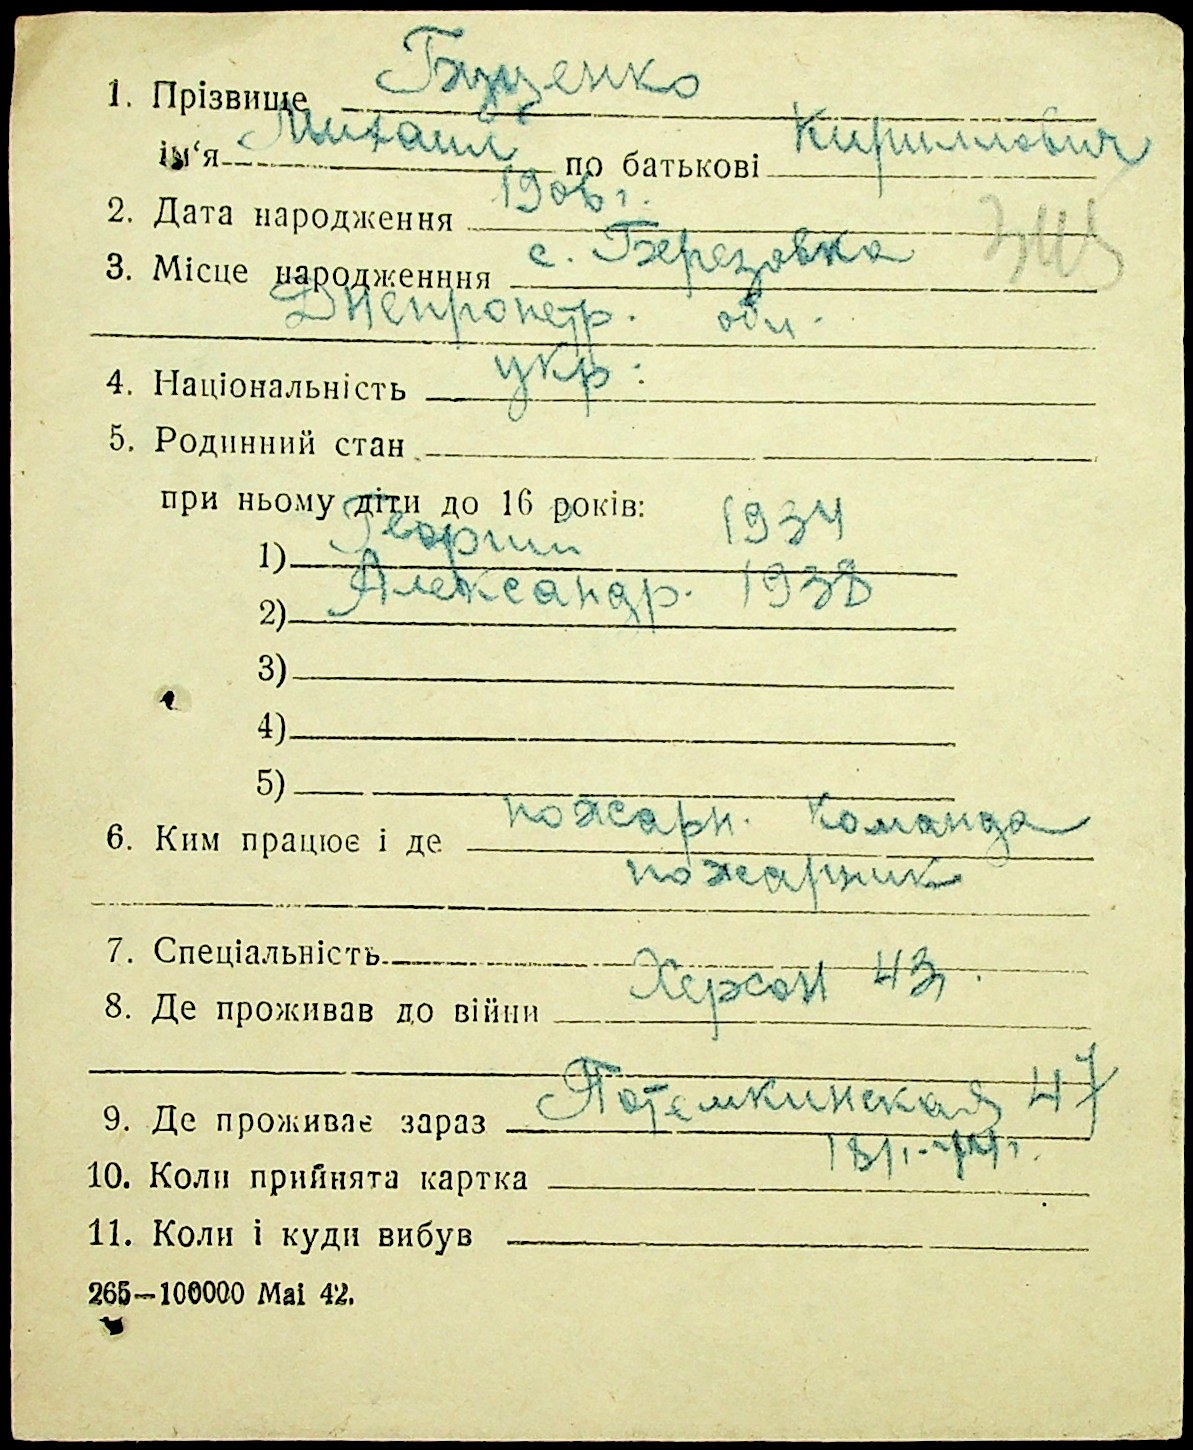 1. Прізвище Буценко
ім‘я Михаил по батькові Кириллович
2. Дата народження 1906 г.
3. Місце народженння с. Березовка
Днепропетр. обл.
4. Національність укр.
5. Родинний стан
при ньому діти до 16 років:
1) Георгий 1934
2) Александр. 1938
3)
4)
5)
6. Ким працює і де пожарн. команда
пожарник
7. Спеціальність
8. Де проживав до війни Херсон 43.
9. Де проживає зараз Потемкинская 47
10. Коли прийнята картка
11. Коли і куди вибув
265—100000 Mai 42.